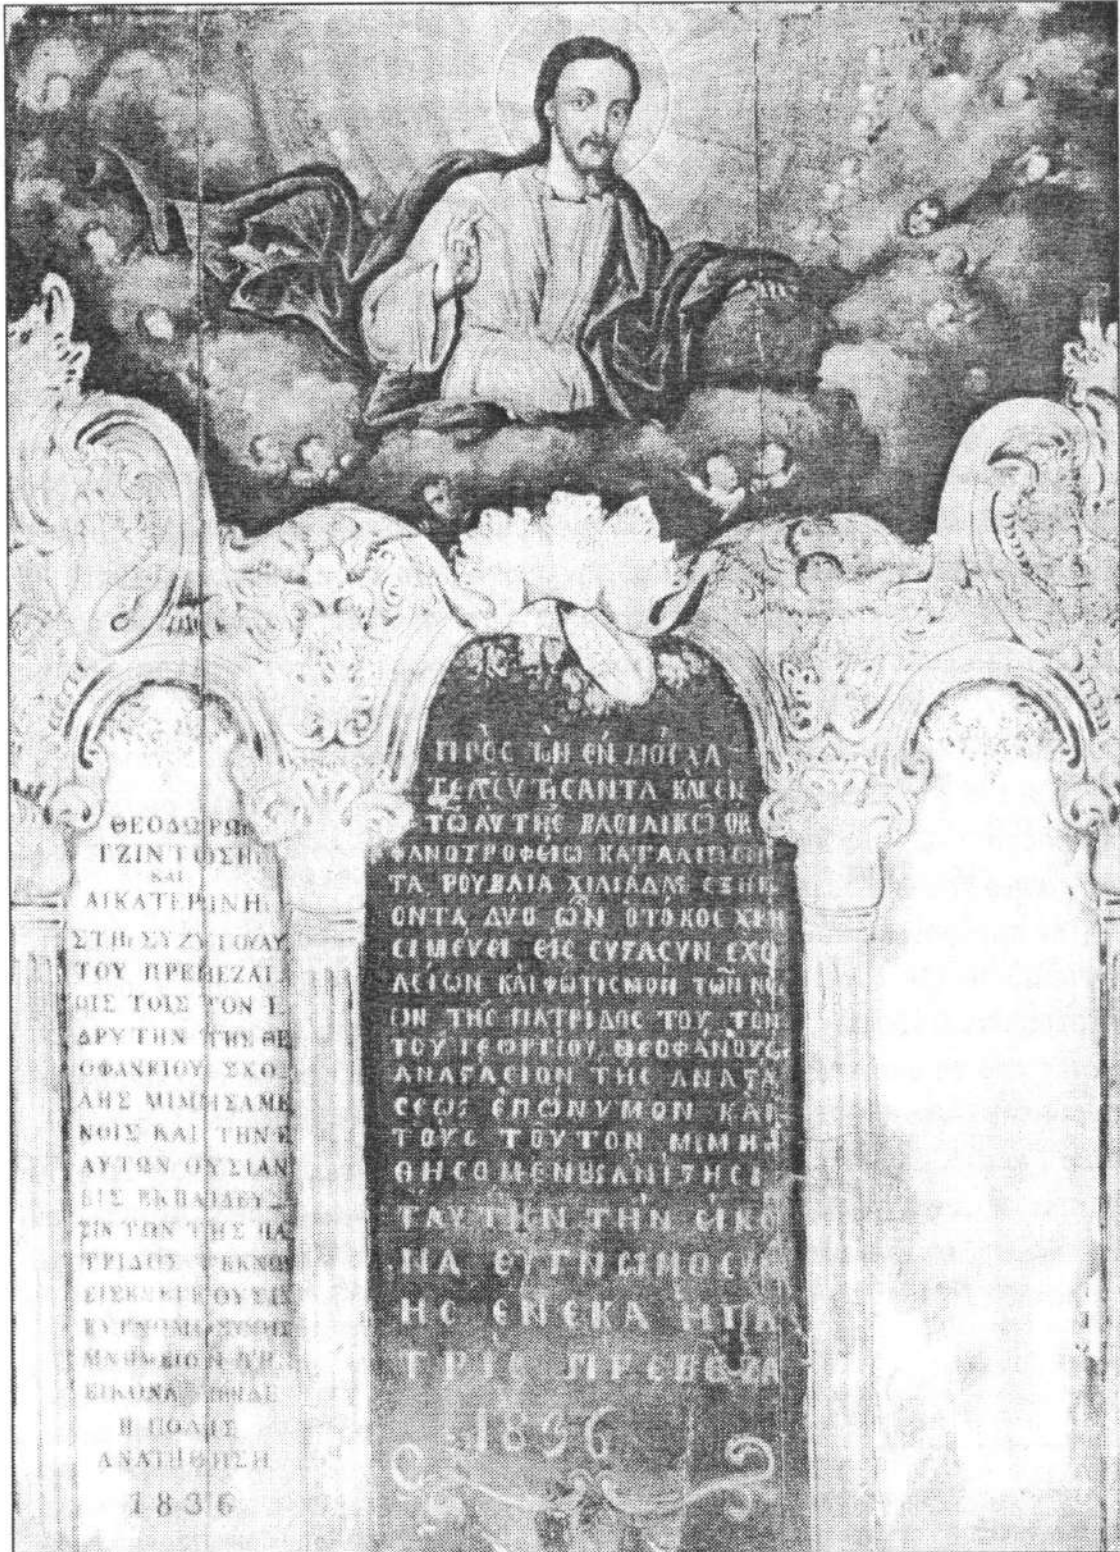 ΘΕΟΔΩΡΩ
ΤΖΙΝΤΩΣΗ
ΚΑΙ
ΑΙΚΑΤΕΡΙΝΗ
ΣΤΗ ΣΥΖΥΓΟΥΑΥ
ΤΟΥ ΠΡΕΒΕΖΑΙ
ΟΙΣ ΤΟΙΣ ΤΟΝ Ι
ΔΡΥΤΗΝ ΤΗΣ ΘΕ
ΟΦΑΝΕΙΟΥ ΣΧΟ
ΛΗΣ ΜΙΜΗΣΑΜΕ
ΝΟΙΣ ΚΑΙ ΤΗΝ Ε
ΑΥΤΩΝ ΟΥΣΙΑΝ
ΕΙΣ ΕΚΠΑΙΔΕΥ
ΣΙΝ ΤΩΝ ΤΗΣ ΠΑ
ΤΡΙΔΟΣ ΤΕΚΝΩ
ΜΝΗΜΕΙΟΝ
ΕΙΚΟΝΑ
Η ΠΟΛΙΣ
1836
ΠΡΟΣ ΤῊ ΕΝ ΜΟΣΧΑ
ΤΩ ΑΥΤΗΣ ΒΑΣΙΛΙΚΩ ΟΡ
ΦΑΝΟΤΡΟΦΕΙΩ ΚΑΤΑΛΙΠΟΝ
ΤΑ ΡΟΥΒΛΙΑ ΧΙΛΙΑΔΑΣ ΕΞΗΚ
ΟΝΤΑ ΔΥΟ ΩΝ Ο ΤΟΚΟΣ ΧΡΗ
ΣΙΜΕΥΕΙ ΕΙΣ ΣΥΣΑΣΥΝ ΣΧΟ
ΛΕΙΩΝ ΚΑΙ ΦΩΤΙΣΜΟΝ ΤΩΝ ΝΕ
ΩΝ ΤΗΣ ΠΑΤΡΙΔΟΣ ΤΟΥ ΤΟΝ
ΤΟΥ ΓΕΩΡΓΙΟΥ ΘΕΟΦΑΝΟΥΣ
ΑΝΑΣΑΣΙΟΝ ΤΗΣ ΑΝΑΣΑ
ΣΕΩΣ ΕΠΩΝΥΜΟΝ ΚΑΙ
ΤΟΥΣ ΤΟΥΤΟΝ ΜΙΜΗ
ΘΗΣΟΜΕΝΟΥΣ
ΤΑΥΤΗΝ ΤΗΝ ΕΙΚΟ
ΝΑ ΕΥΓΝΩΜΟΣΥ
ΗΣ ΕΝΕΚΑ Η ΠΑ
ΤΡΙΣ ΠΡΕΒΕΖΑ
1896